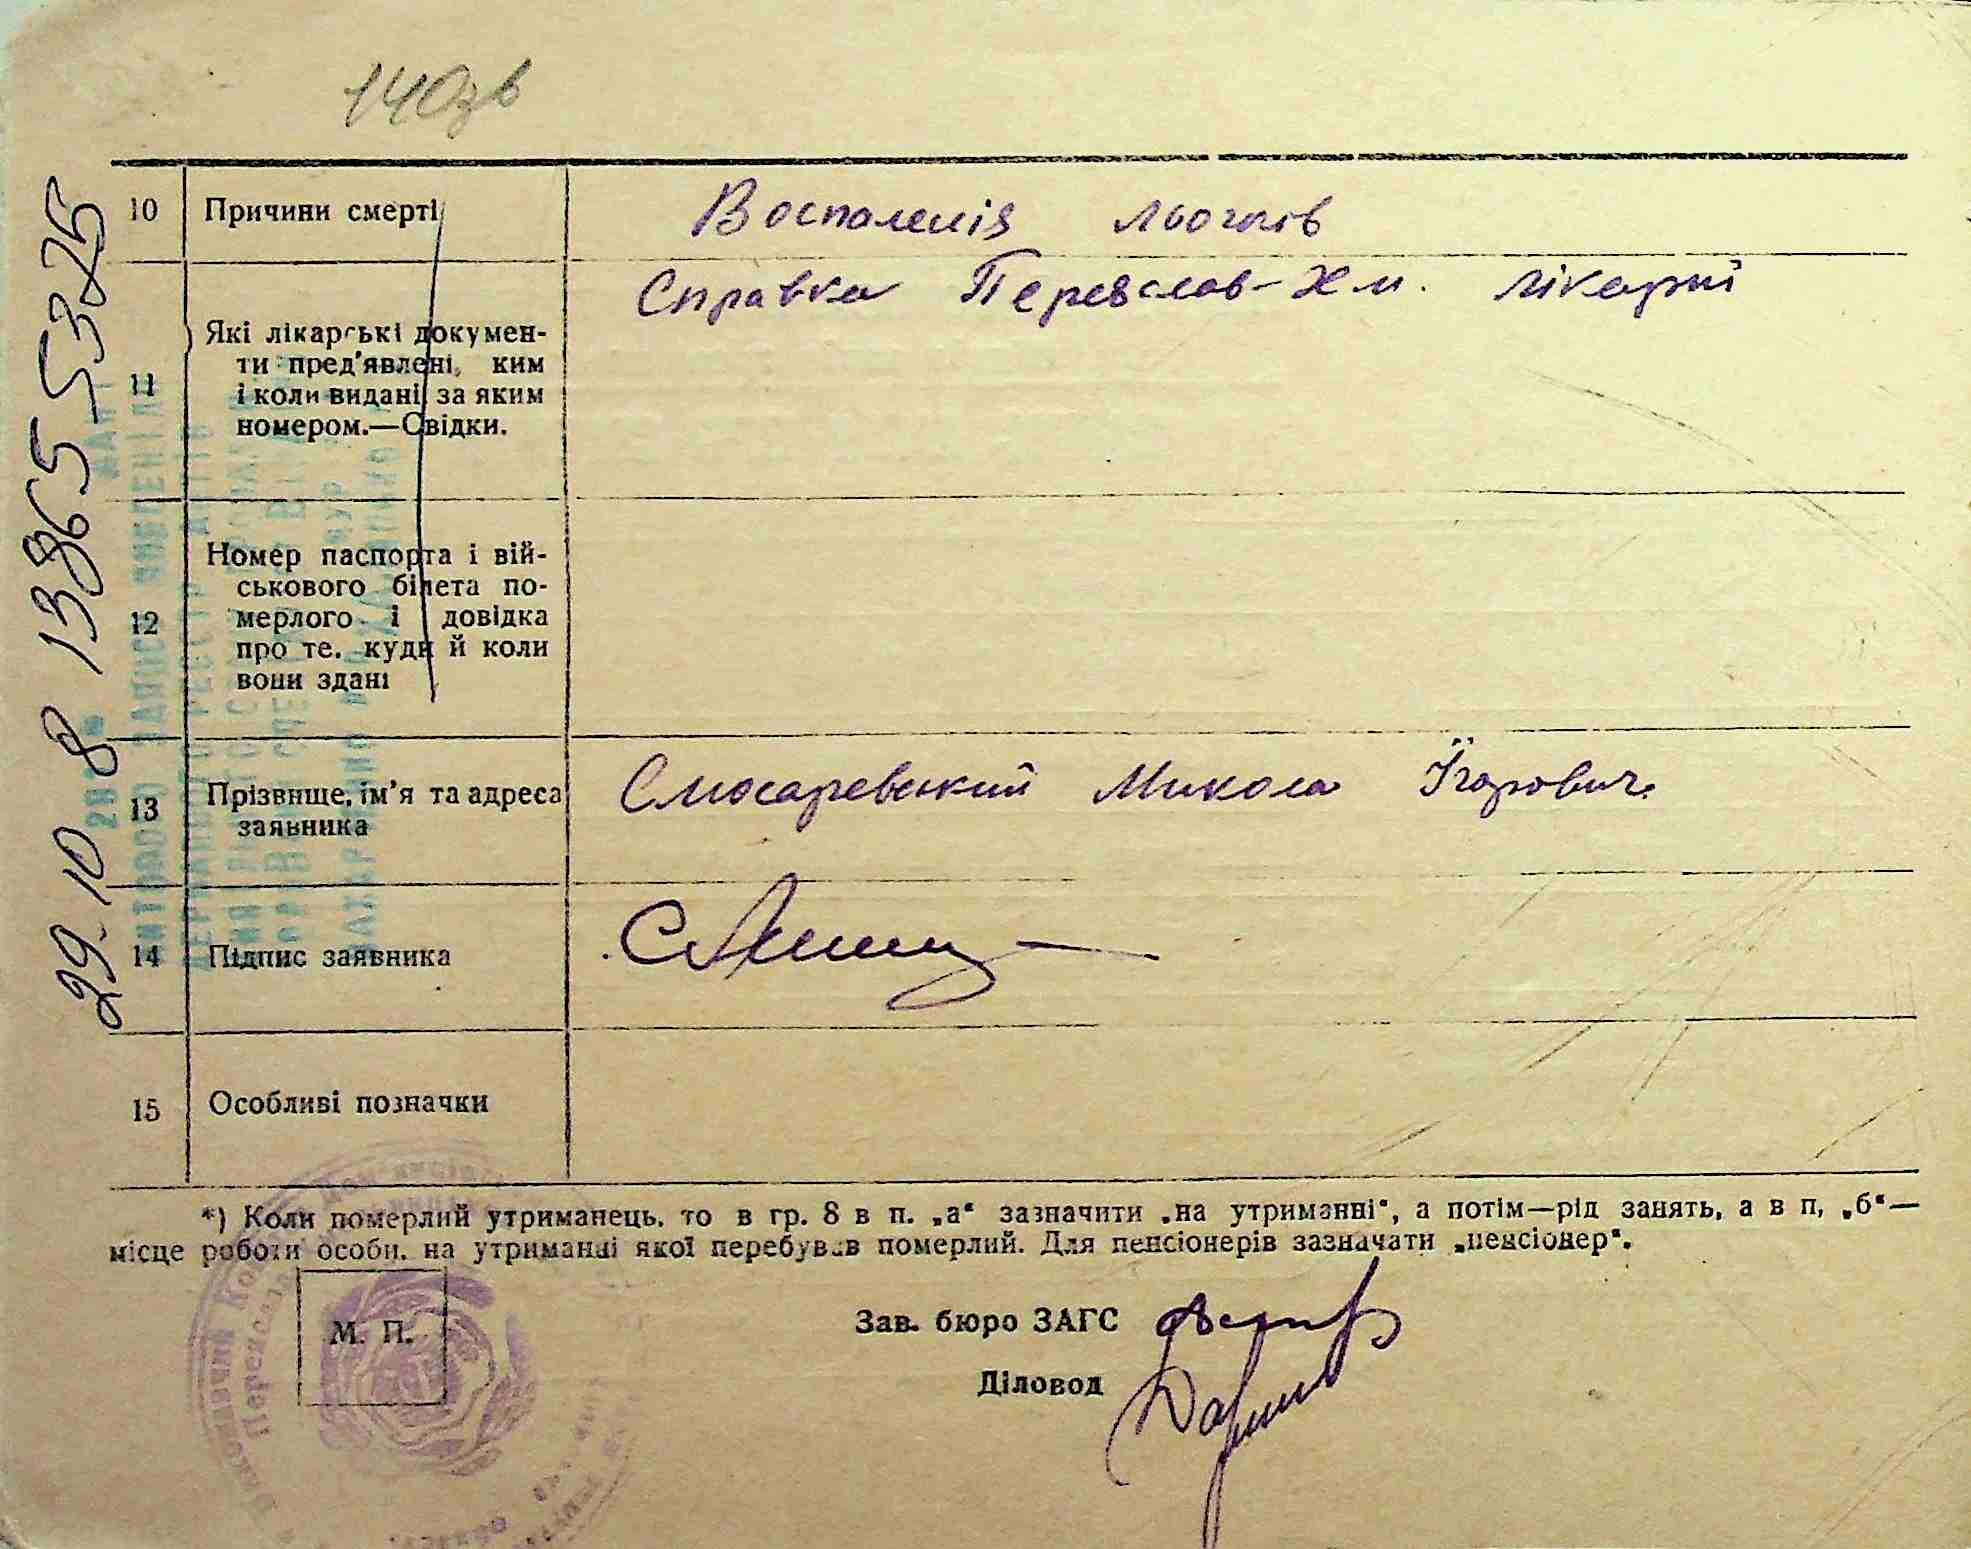 140зв
10 Причини смерті Воспаленія льогків
11 Які лікарські докумен-
ти пред'явлені, ким
і коли видані, за яким
номером.—Свідки.
Справка Переяслав-Хм. лікарні
12 Номер паспорта і вій-
ськового білета по-
мерлого і довідка
про те, куди й коли
вони здані
13 Прізвище, ім'я та адреса
заявника
Слюсаревський Микола Ігорович
14 Підпис заявника
15 Особливі позначки
*) Коли померлий утриманець, то в гр. 8 в п. „а“ зазначити „на утриманні“, а потім—рід занять, а в п, „б“—
місце роботи особи, на утриманні якої перебував померлий. Для пенсіонерів зазначати „пенсіонер“.
М. П.
Зав. бюро ЗАГС
Діловод
29 10 8 13865 5325